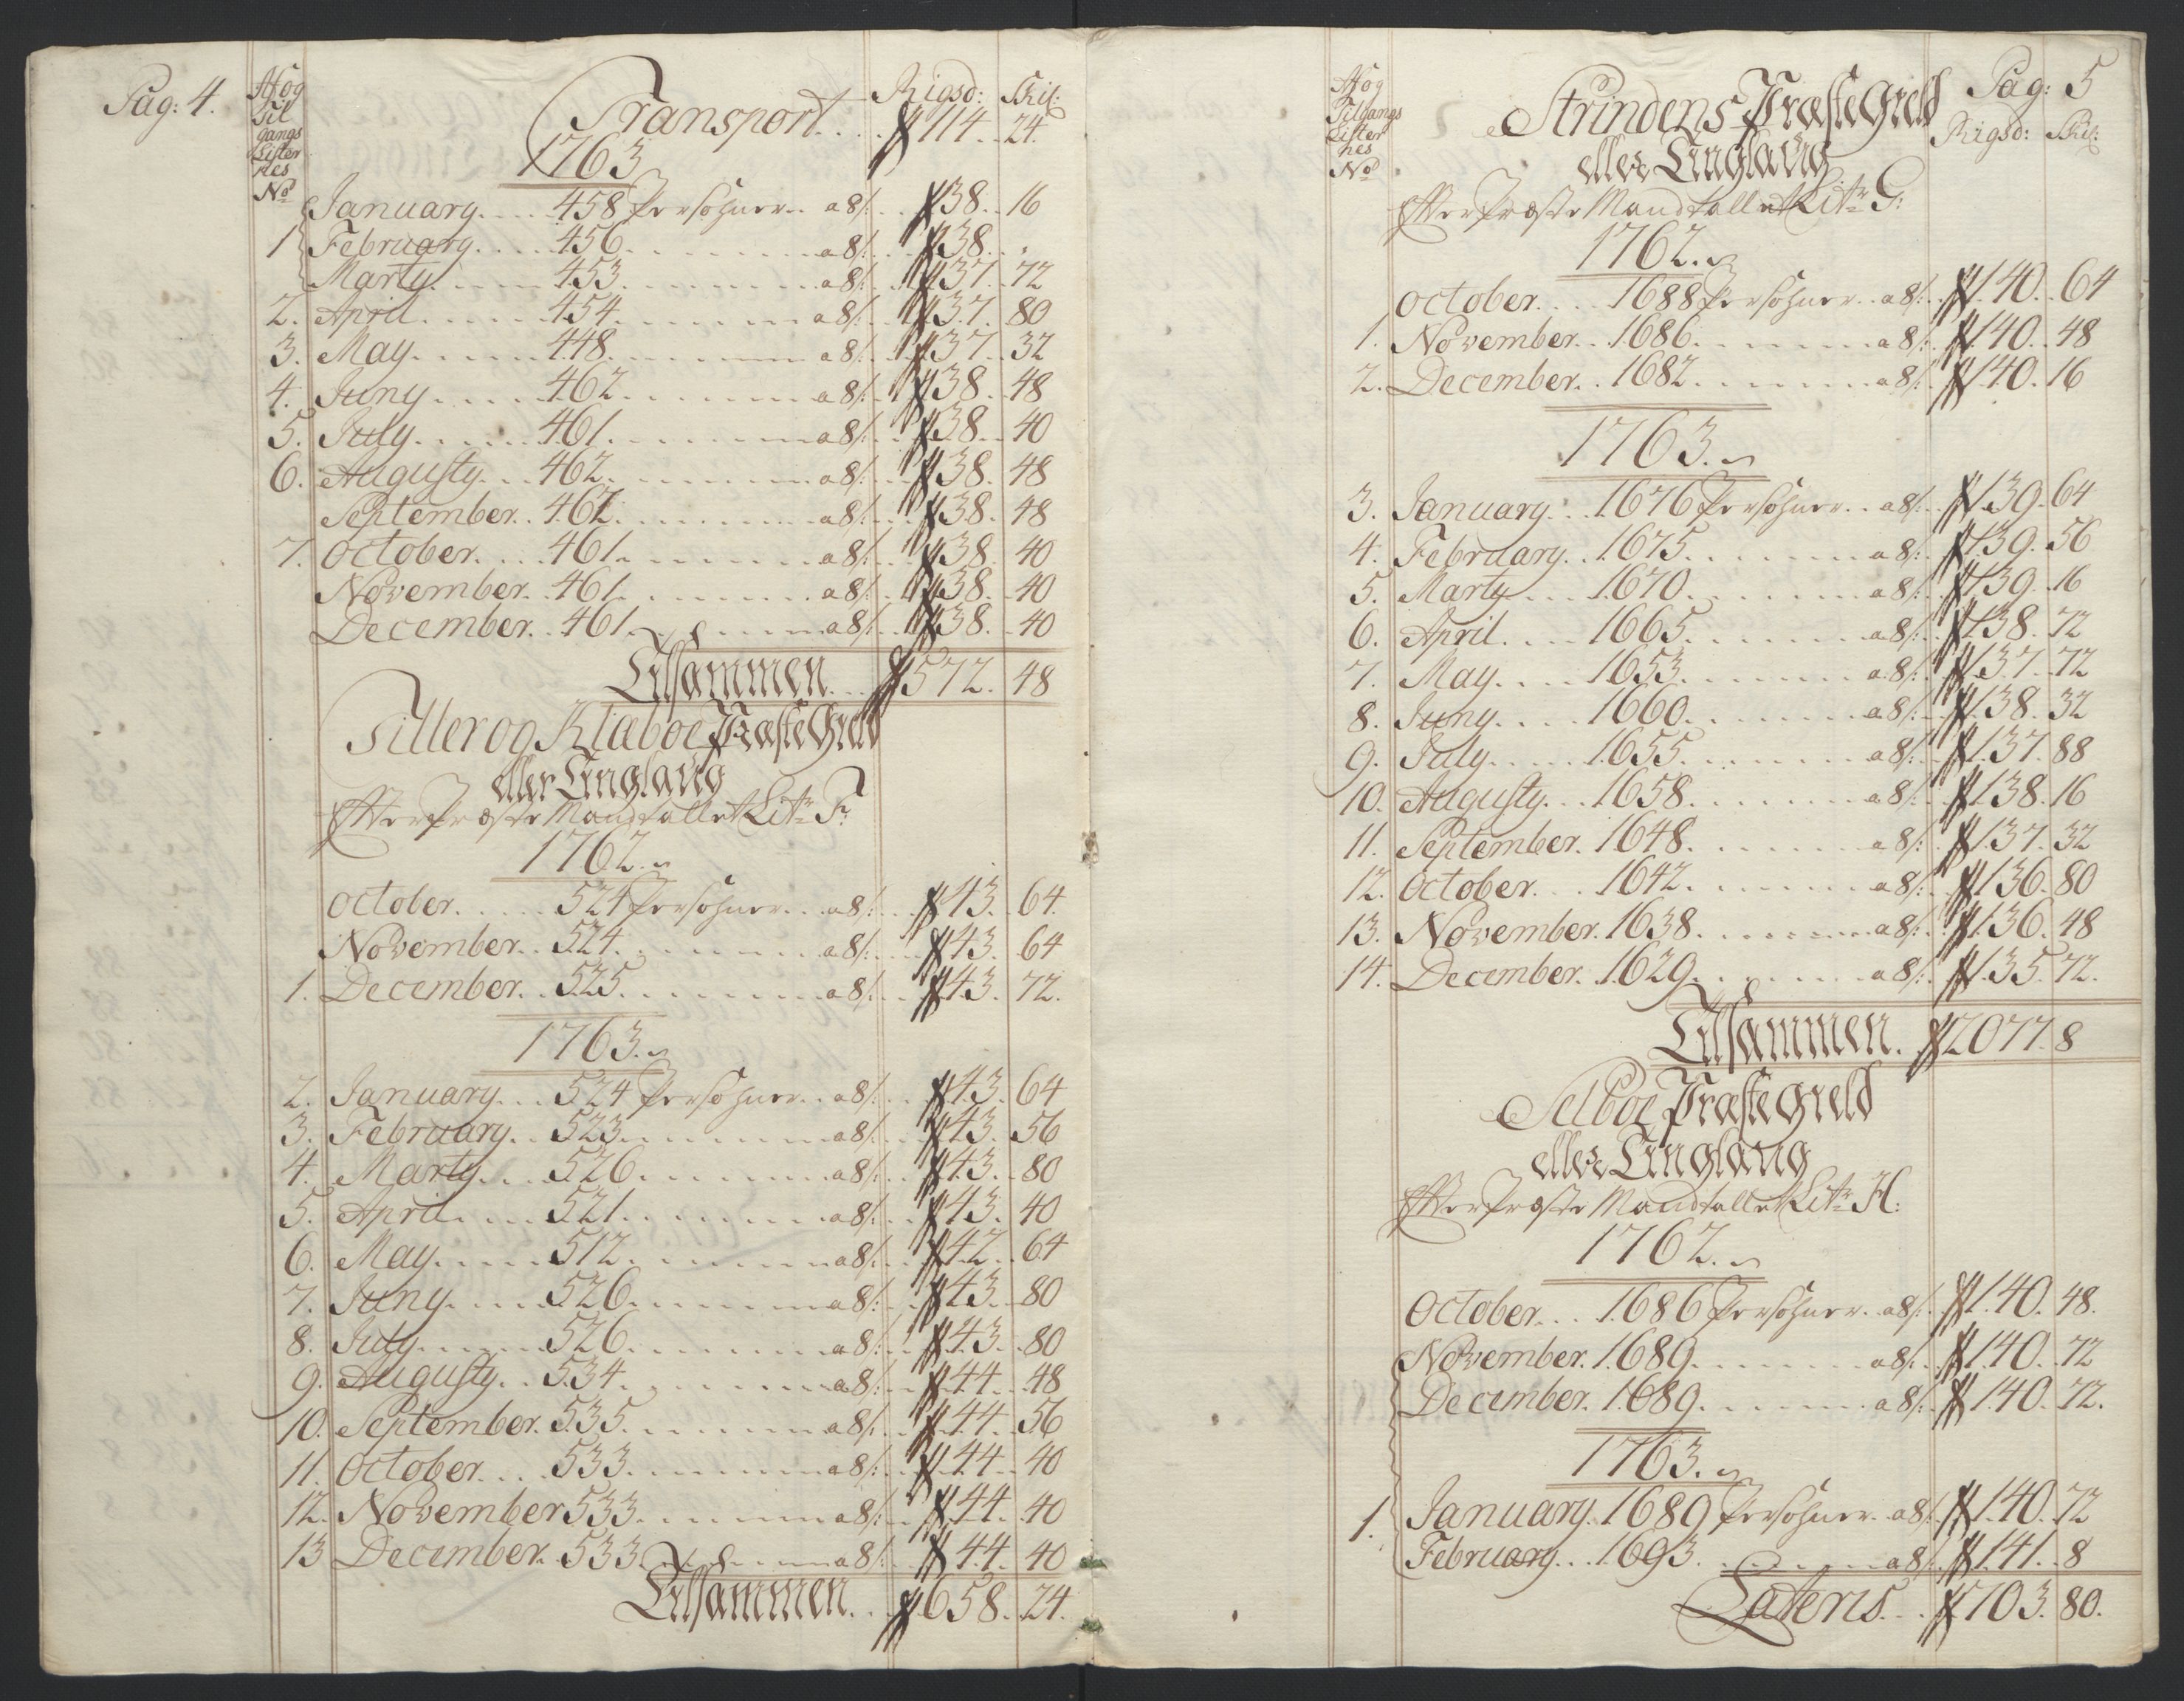 Pag: 4.
Af og
Til
gangs
Lister
nes
No
Rigsd: Skil:
Transport.... 114.. 24.
1763
January.... 458 Persohner.. a 8/:.. 38.. 16
1 February.... 456. a 8/:.. 38..
Marty.... 453. a 8/:.. 37.. 72
2. April..... 454. a 8/:.. 37.. 80
3. May...... 448. a 8/:.. 37.. 32
4. Juny..... 462. a 8/:.. 38.. 48
5. July...... 461. a 8/:.. 38.. 40
6. Augusty... 462. a 8/:.. 38.. 48
September.. 462. a 8/:.. 38.. 48
7. October.... 461. a 8/:.. 38. 40
November.. 461. a 8/:.. 38.. 40
December.. 461. a 8/:.. 38.. 40
Tilsammen... 572. 48
Tiller og Klæboe Præste Gield
eller Tinglaug
Efter Præste Mandtallet Litr: F:
1762.
October..... 524 Persohner.. a 8/:.. 43.. 64.
November.. 524. a 8/:.. 43. 64
1. December.. 525. a 8/:.. 43. 72.
1763.
2. January... 524 Persohner.. a 8/:.. 43. 64
3. February.. 523. a 8/:.. 43. 56
4. Marty.... 526. a 8/:.. 43.. 80
5. April..... 521. a 8/:.. 43. 40
6. May..... 512. a 8/:.. 42.. 64
7. Juny..... 526. a 8/:.. 43.. 80
8. July...... 526. a 8/:.. 43.. 80
9. Augusty.. 534. a 8/:.. 44.. 48
10. September. 535. a 8/:.. 44.. 56
11. October.... 533. a 8/:.. 44.. 40
12. November 533. a 8/:.. 44.. 40
13 December.. 533 a 8/:.. 44.. 40
Tilsammen... 658.. 24.
Pag: 5
Af og
Tilgangs
Lister
nes
No
Strindens Præste Gield
Rigsd: Skil:
eller Tinglaug
Efter Præste Mandtallet Litr: G:
1762.
October.... 1688 Persohner.. a 8/:.. 140.. 64
1. November.. 1686. a 8/:.. 140.. 48
2. December.. 1682. a 8/:.. 140. 16
1763.
3. January... 1676 Persohner.. a 8/:. 139. 64
4. February.. 1675. a 8/:. 139.. 56
5. Marty.... 1670. a 8/:. 139.. 16
6. April.... 1665. a 8/:.. 138.. 72
7. May.... 1653. a 8/:.. 137.. 72
8. Juny.... 1660. a 8/:.. 138.. 32
9. July..... 1655. a 8/:.. 137.. 88
10. Augusty... 1658. a 8/:.. 138. 16
11. September. 1648. a 8/:. 137.. 32
12. October... 1642. a 8/:.. 136. 80
13. November. 1638. a 8/:. 136.. 48
14. December. 1629. a 8/:. 135. 72.
Tilsammen. 2077. 8
Selboe Præste Gield
eller Tinglaug
Efter Præste Mandtallet Litr: H:
1762.
October... 1686 Persohner.. a 8/:. 140.. 48.
November. 1689. a 8/:.. 140.. 72
December. 1689. a 8/:. 140.. 72.
1763.
1. January. 1689 Persohner.. a 8/:. 140. 72
February... 1693. a 8/:. 141.. 8
Lateris... 703. 80.